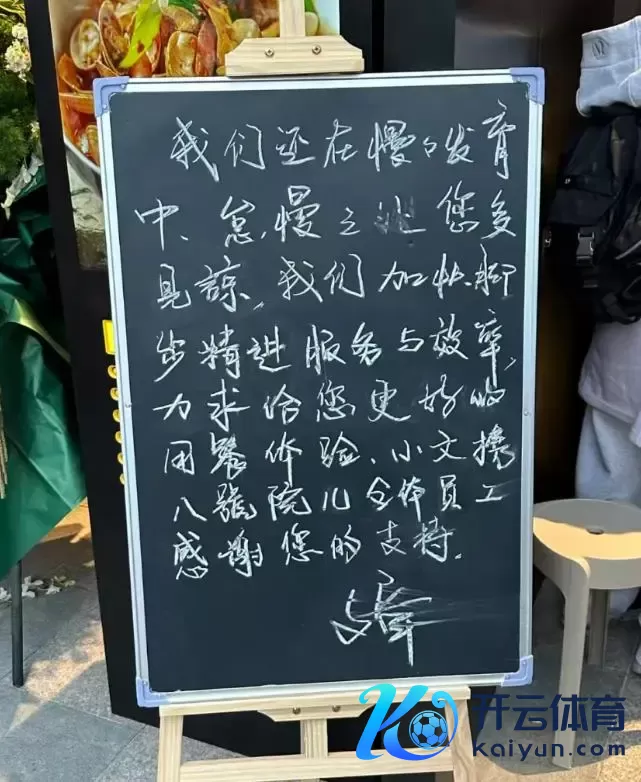 我们还在慢々发育
中、怠慢之处您多
見諒，我们加快脚
步精进服务与效率，
力求给您更好的
用餐体验、小文携
八號院儿全体員工
感谢您的支持．
开云体育
kaiyun.com